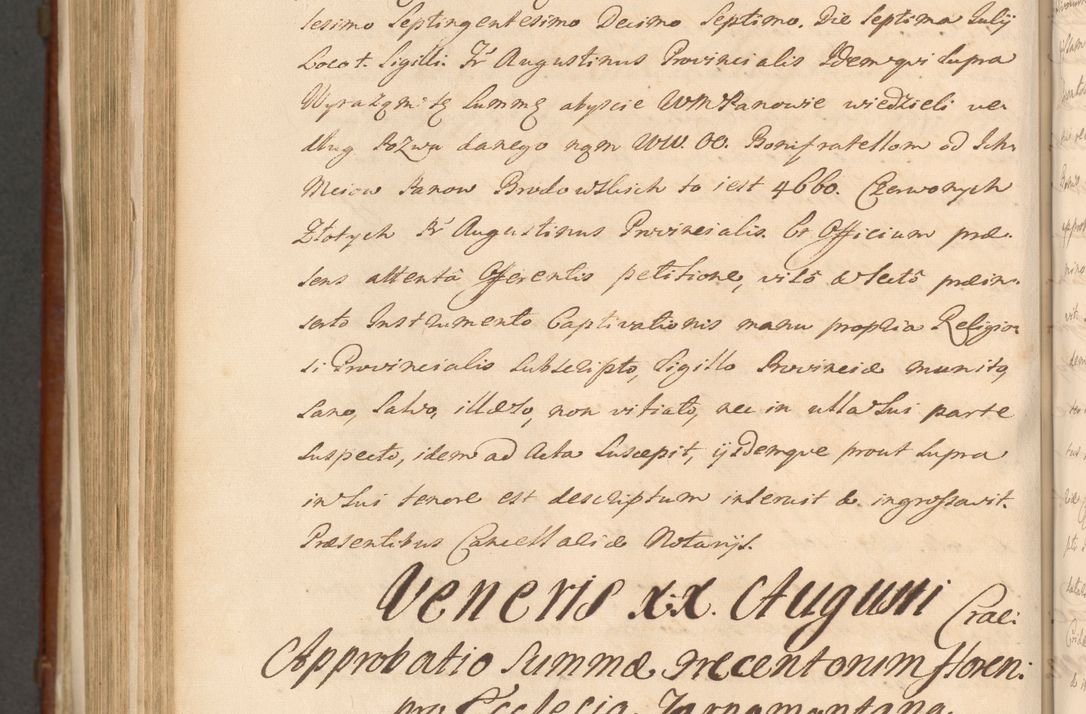 lesimo Septingentesimo Decimo Septimo. Die Septima Julij
Locot. Sigilli. Fr Augustinus Provincialis Idemqui supra
Wyrażąmitę summę abyście WMPanowie wiedzieli ve-
dług Pozwu danego nąm WW. OO. Bonifratellom od Ich
Mciow Panow Brodowskich to iest 4660. Czerwonych
Złotych Fr Augustinus Provincialis. Et Officium præ-
sens attentâ Offerentis petitione, visô & lectô præin-
serto Instrumento Captivationis manu propria Religio-
si Provincialis subscripto, sigillo Provinciæ munito,
sano, salvo, illæso, non vitiato, nec in ulla sui parte
suspecto, idem ad Acta suscepit, ijsdemque prout supra
in sui tenore est descriptum inseruit & ingrossavit.
Præsentibus Cancellariæ Notarijs.
Veneris xx. Augusti
Crac:
Approbatio Summæ Trecentorum floren:
pro Ecclesia Tarnamontana.